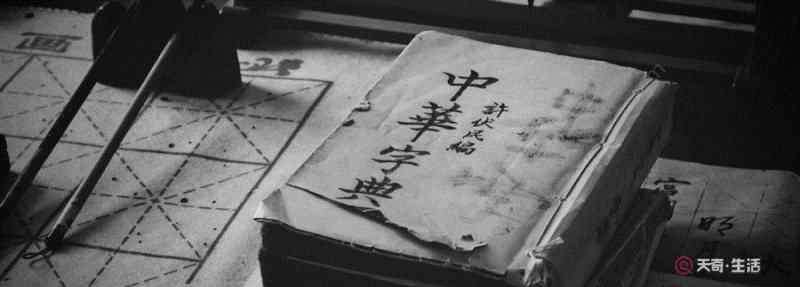 画
中華字典
許伏民編
明
天奇·生活